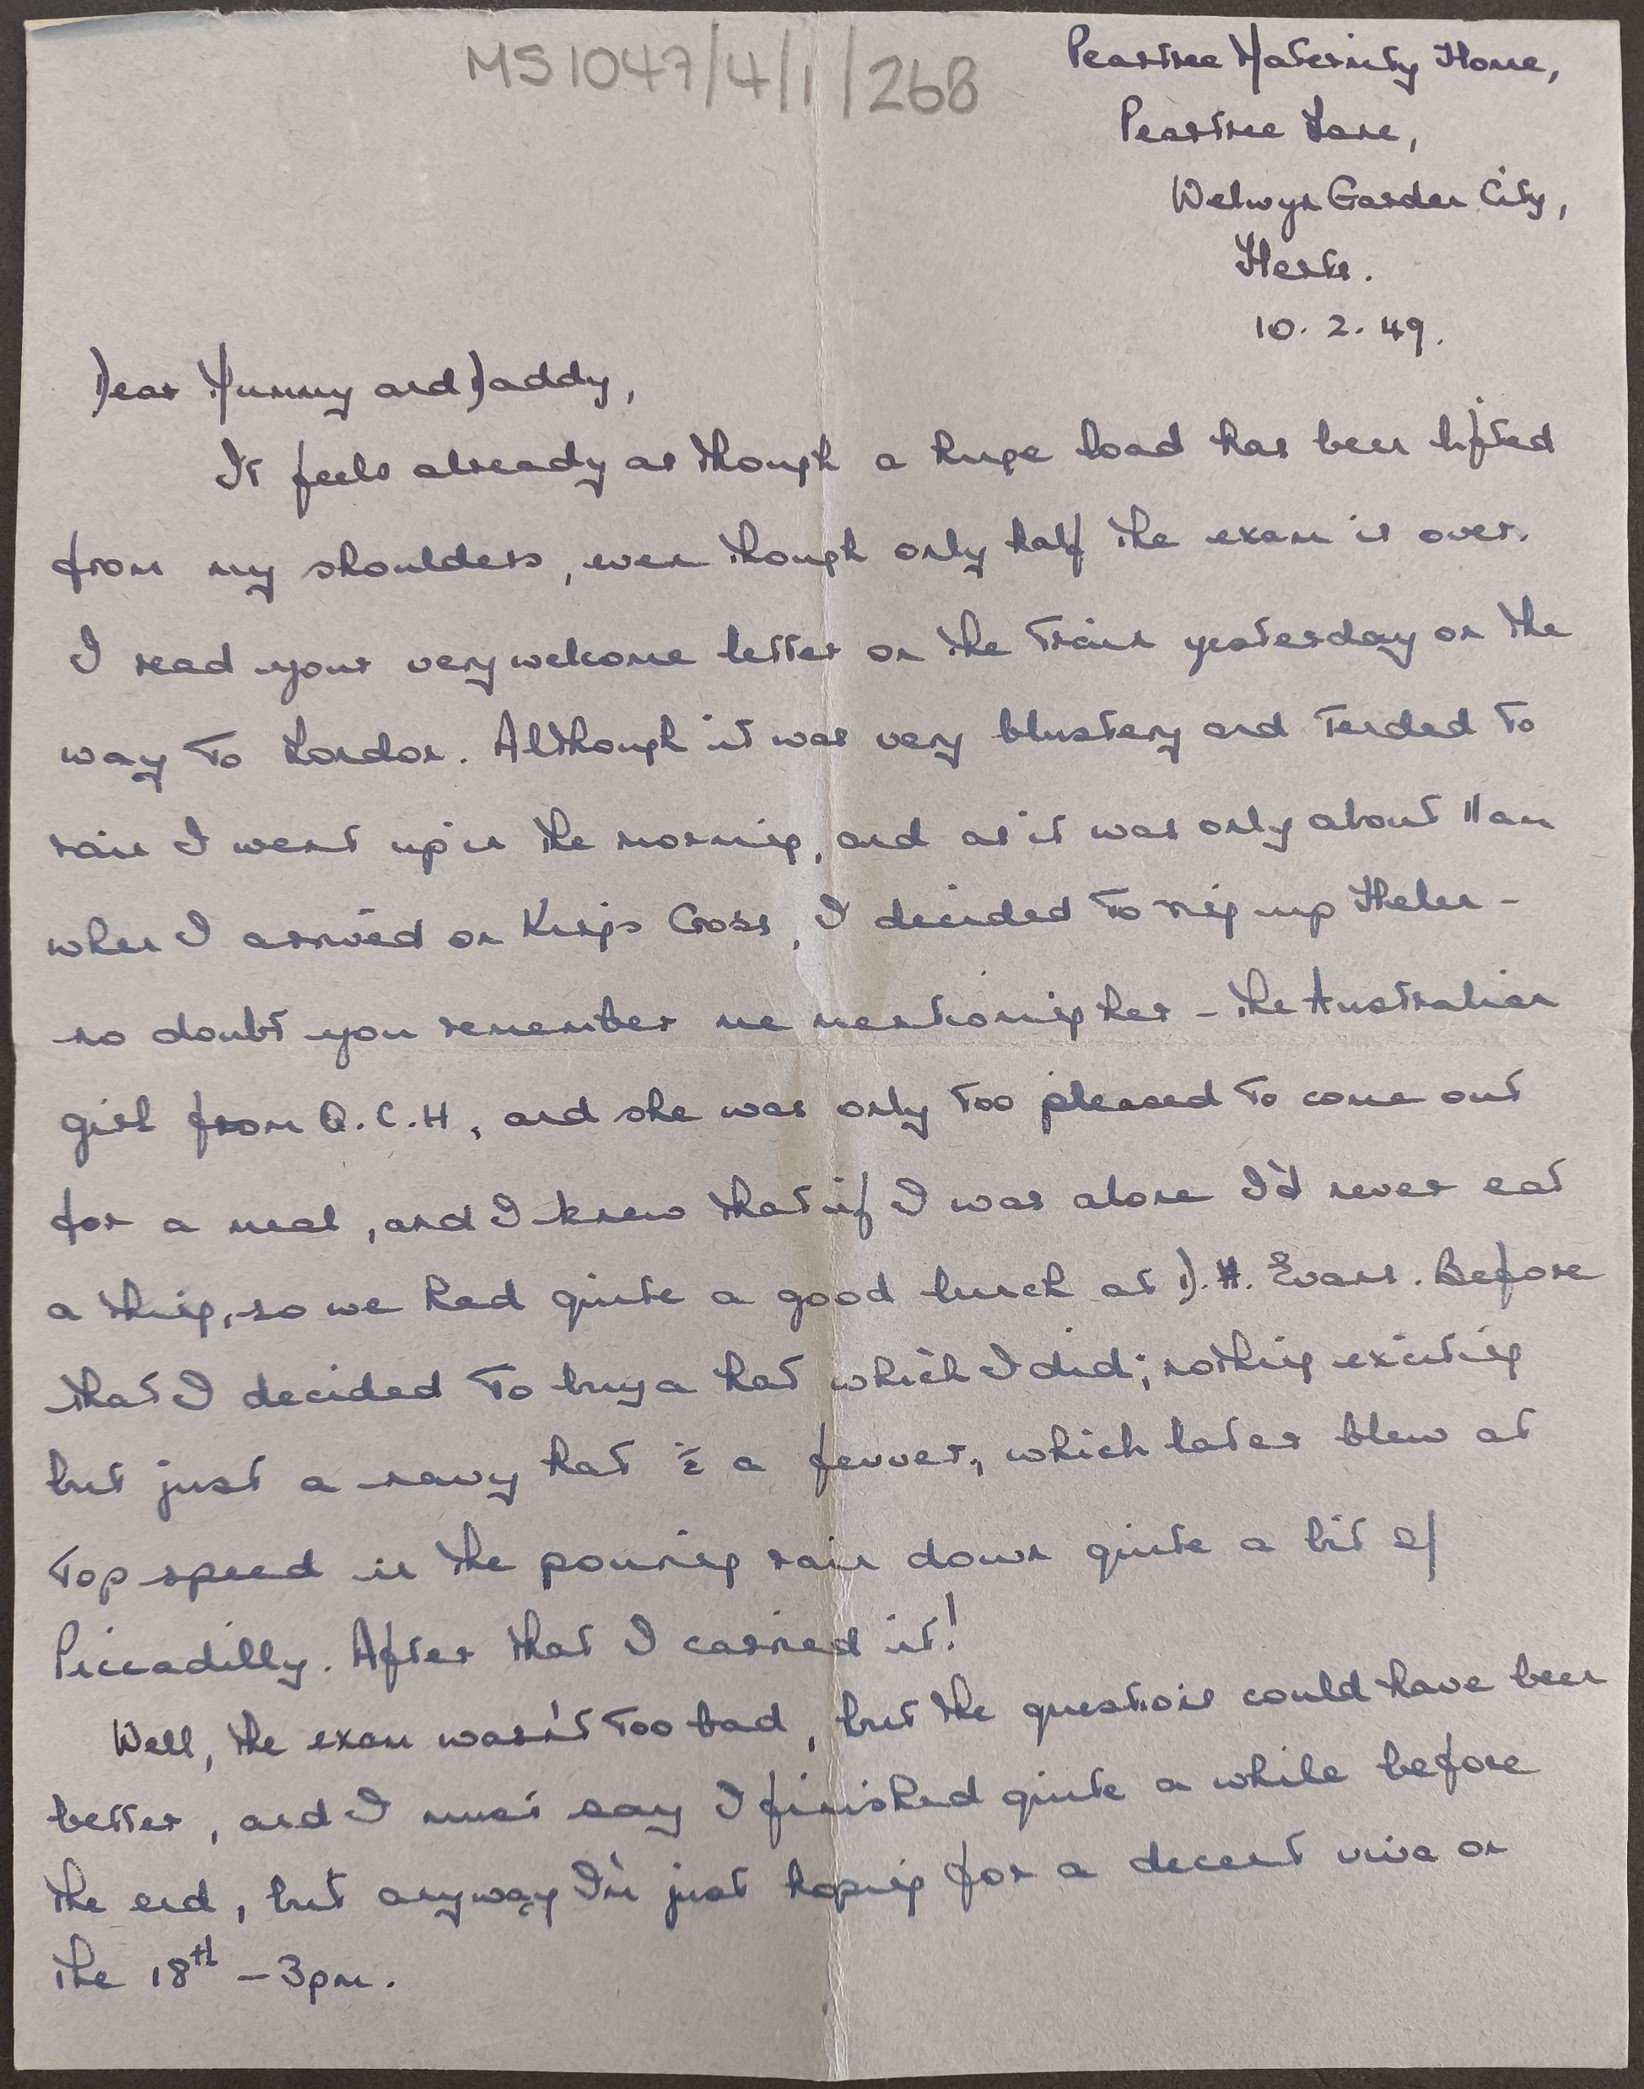 MS1047/4/1/268
Peartree Maternity Home,
Peartree Lane,
Welwyn Garden City,
Herts.
10. 2. 49.
Dear Mummy and Daddy,
It feels already as though a huge load has been lifted
from my shoulders, even though only half the exam is over.
I read your very welcome letter on the train yesterday on the
way to London. Although it was very blustery and tended to
rain I went up in the morning, and as it was only about 11am
when I arrived on Kings Cross, I decided to ring up Helen -
no doubt you remember me mentioning her - the Australian
girl from Q.C.H, and she was only too pleased to come out
for a meal, and I knew that if I was alone I'd never eat
a thing, so we had quite a good lunch at D.H. Evans. Before
that I decided to buy a hat which I did; nothing exciting
but just a navy hat c̄ a fevver, which later blew at
top speed in the pouring rain down quite a bit of
Piccadilly. After that I carried it!
Well, the exam wasn't too bad, but the questions could have been
better, and I must say I finished quite a while before
the end, but anyway I'm just hoping for a decent viva on
the 18th - 3pm.